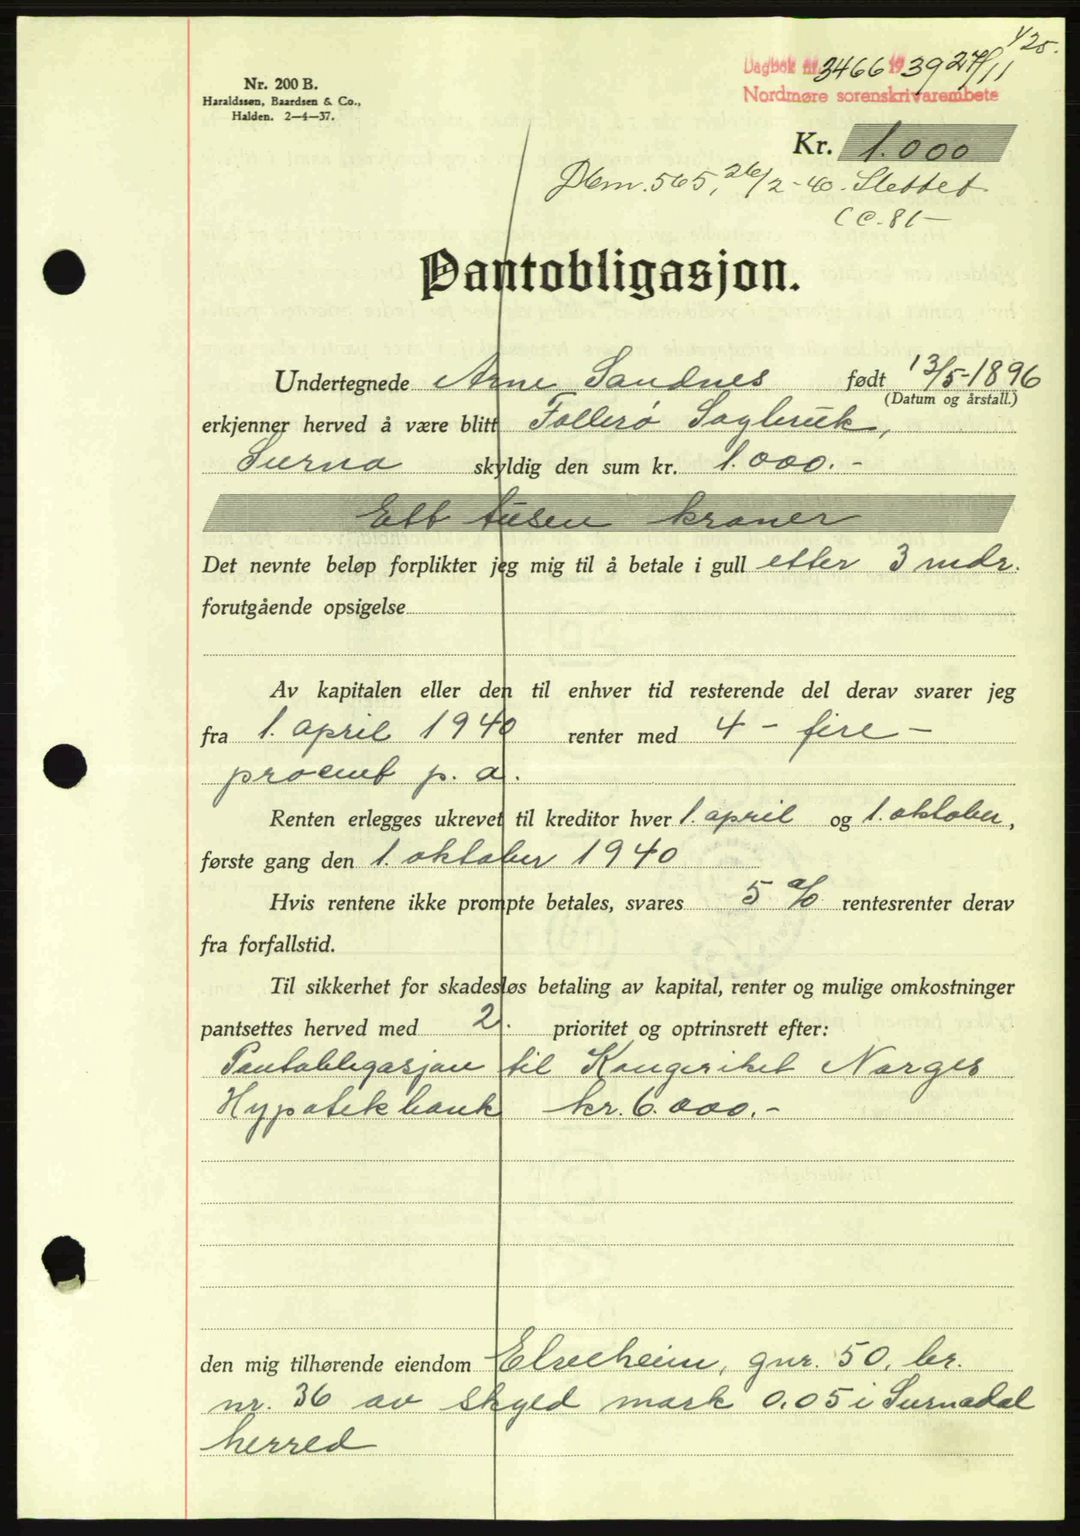 425.
Dagbok nr. 3466 1939 27/11
Nordmøre sorenskrivarembete
Nr. 200 B.
Haraldssøn, Baardsen & Co.,
Halden. 2—4—37.
Kr. 1.000
Dbm. 565, 26/2-40. Slettet
Pantobligasjon.
Undertegnede Arne Sandnes født 13/5-1896
(Datum og årstall.)
erkjenner herved å være blitt Follerø Sagbruk,
Surna skyldig den sum kr. 1.000.-
Ett tusen kroner
Det nevnte beløp forplikter jeg mig til å betale i gull etter 3 mdr.
forutgående opsigelse
Av kapitalen eller den til enhver tid resterende del derav svarer jeg
fra 1. april 1940 renter med 4 - fire -
procent p. a.
Renten erlegges ukrevet til kreditor hver 1. april og 1. oktober,
første gang den 1. oktober 1940
Hvis rentene ikke prompte betales, svares 5 % rentesrenter derav
fra forfallstid.
Til sikkerhet for skadesløs betaling av kapital, renter og mulige omkostninger
pantsettes herved med 2. prioritet og optrinsrett efter:
Pantobligasjon til Kongeriket Norges
Hypotekbank kr. 6.000.-
den mig tilhørende eiendom Elveheim, gnr. 50, br.
nr. 36 av skyld mark 0.05 i Surnadal
herred